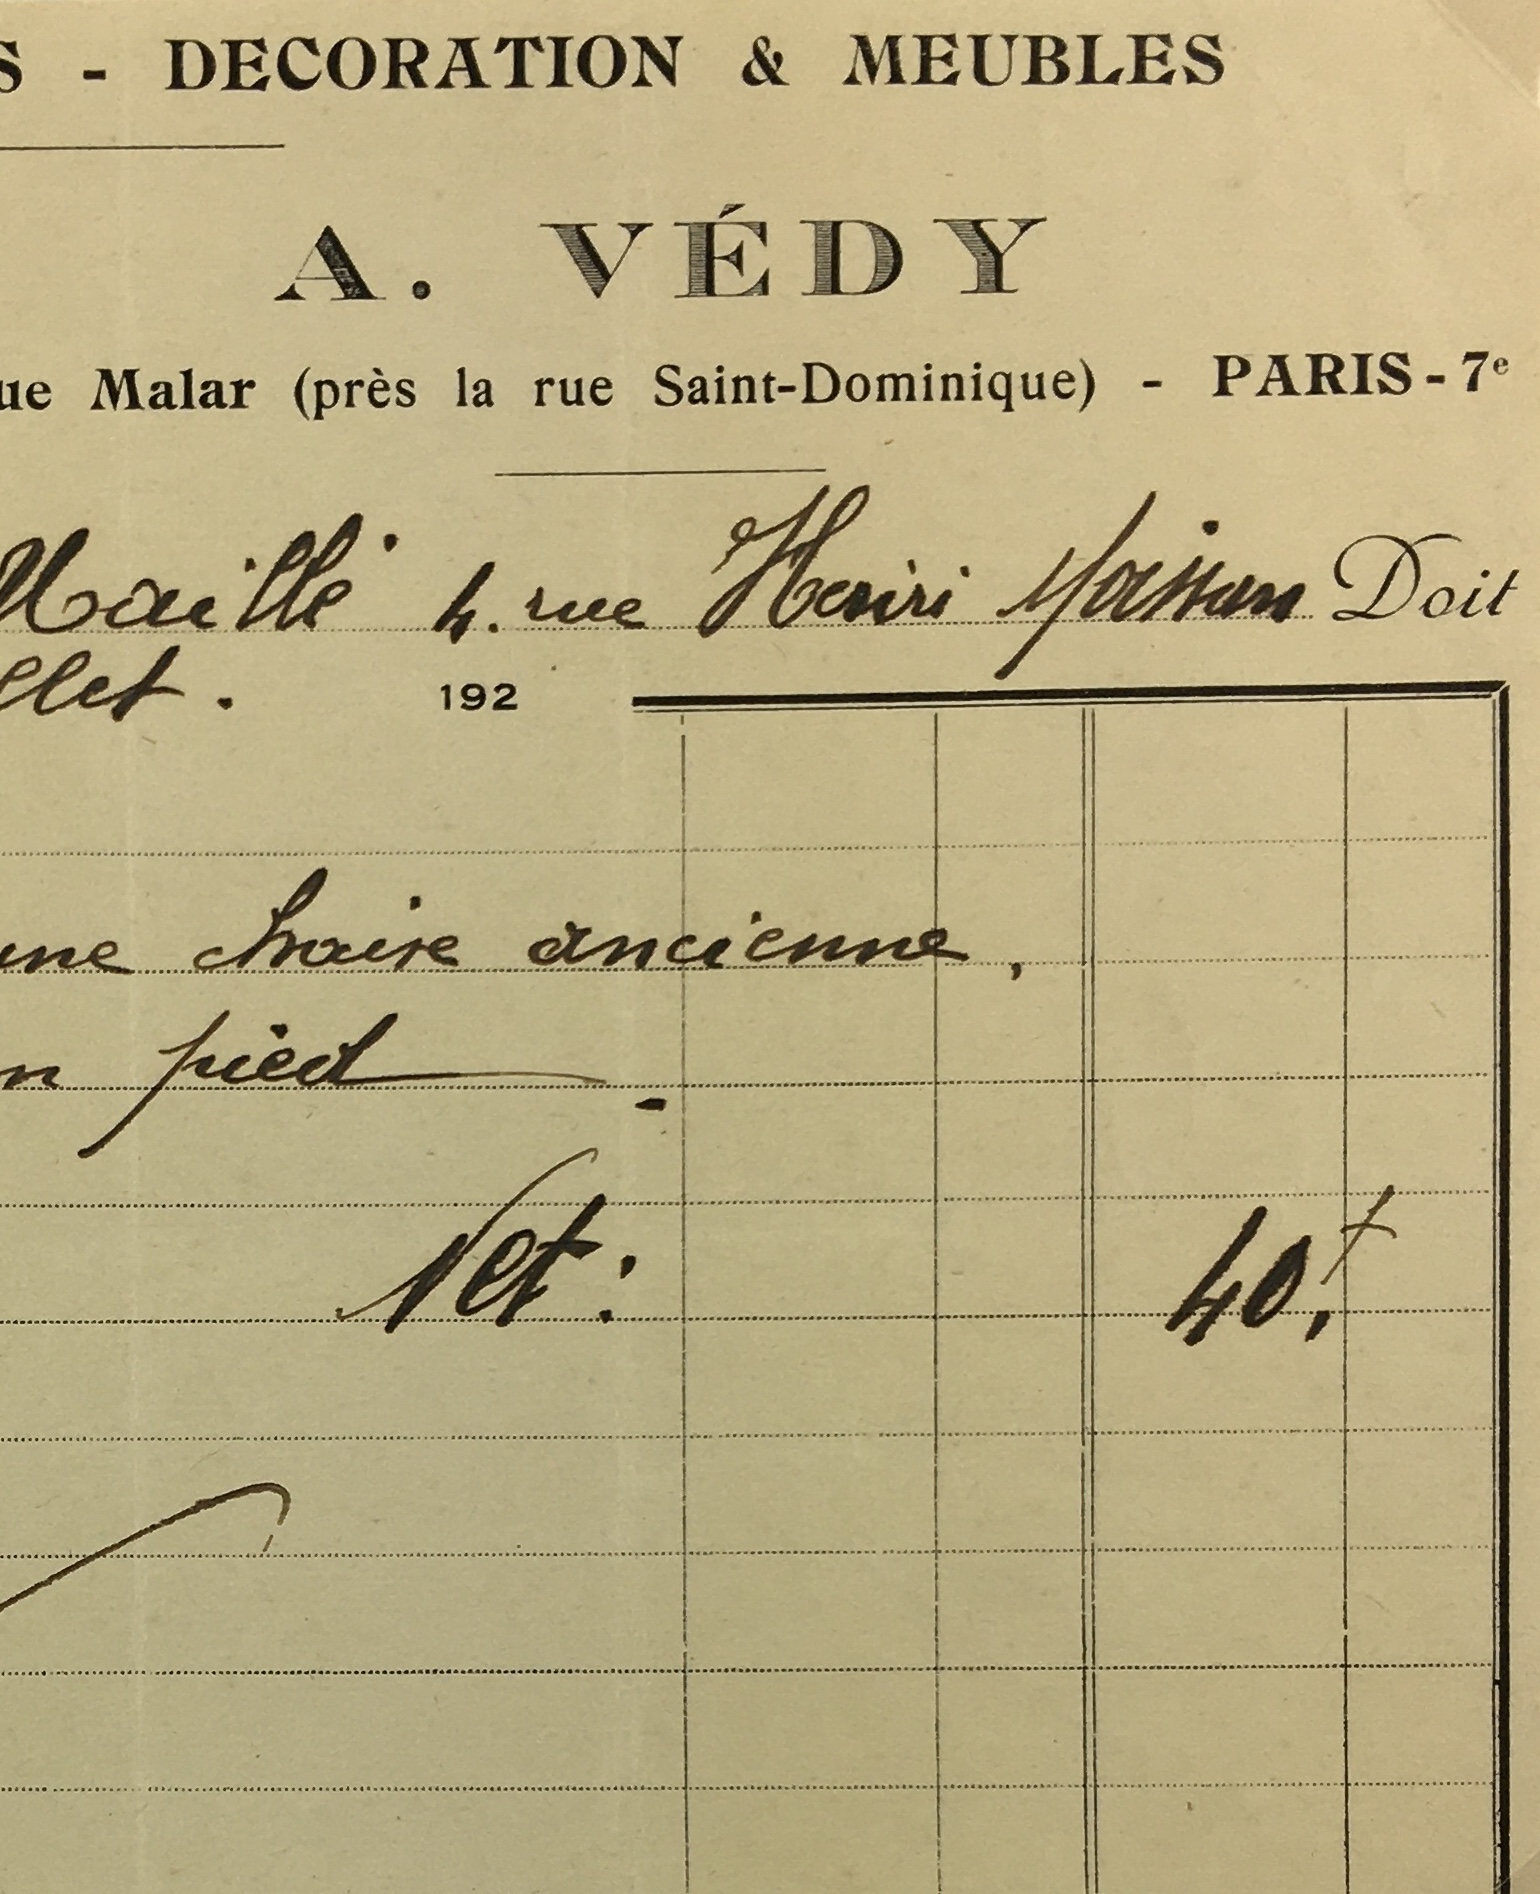 S - DECORATION & MEUBLES
A. VÉDY
ue Malar (près la rue Saint-Dominique) - PARIS - 7e
Maillé 4. rue Henri Doit
llet. 192
une chaise ancienne,
n pied -
Net: 40,f